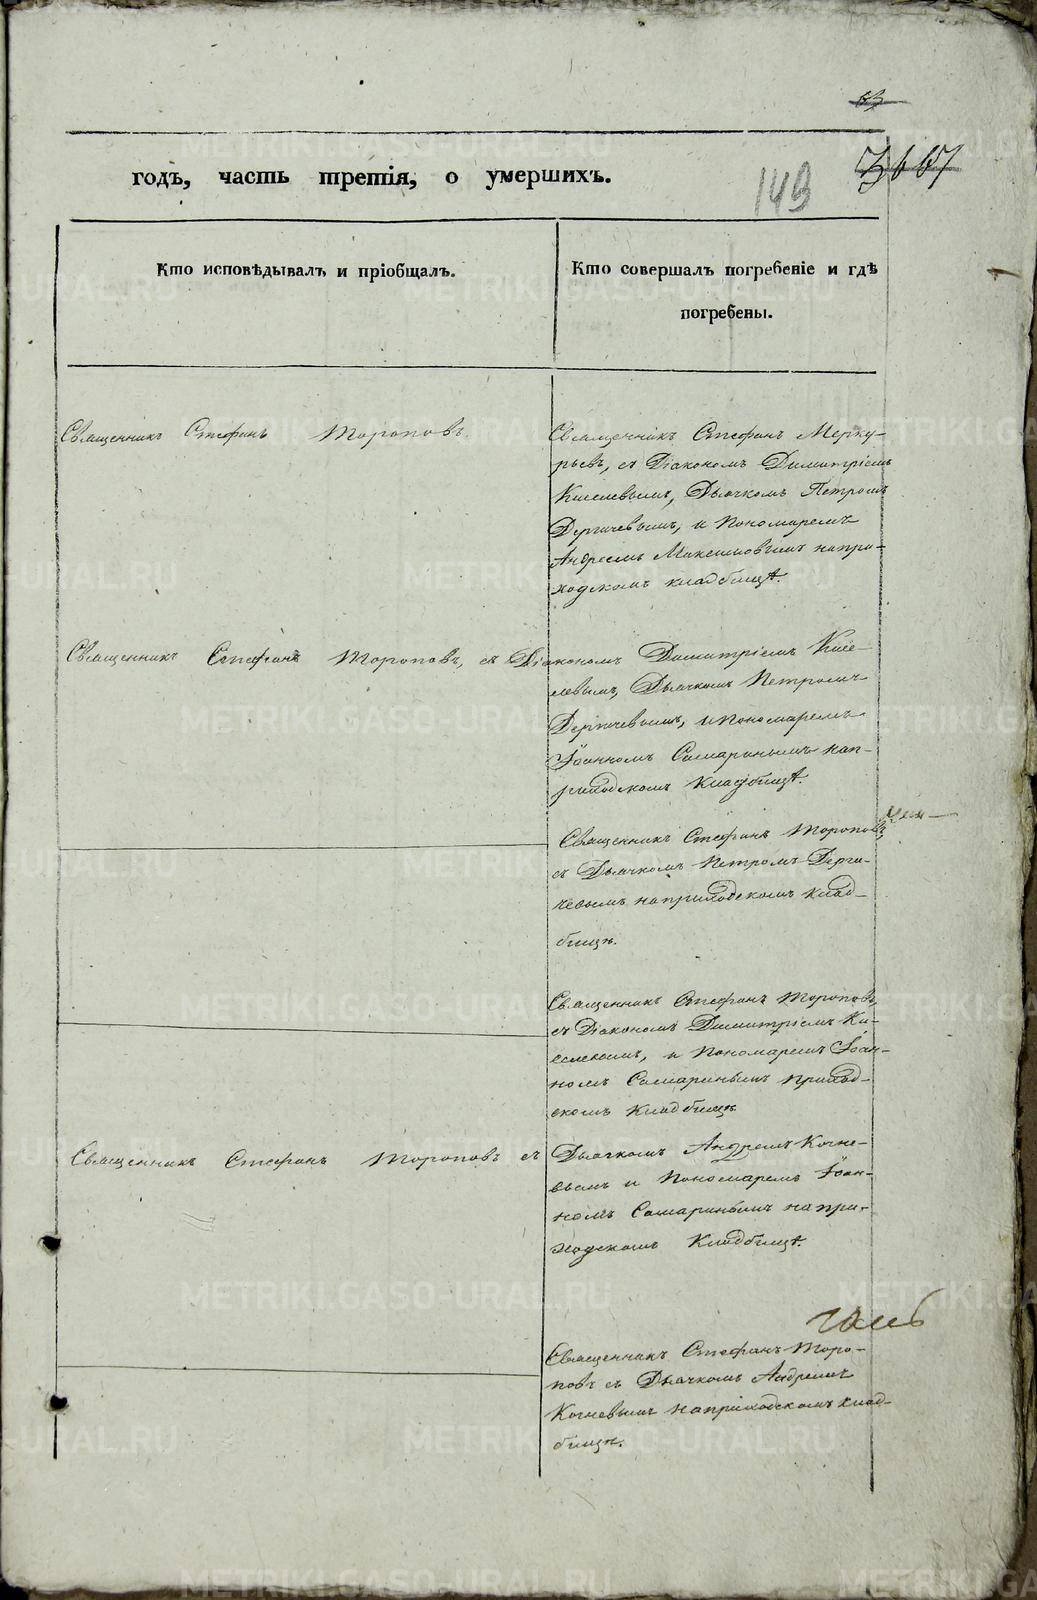 годъ, часть третія, о умершихъ.
149
Кто исповѣдывалъ и пріобщалъ.
Кто совершалъ погребеніе и гдѣ
погребены.
Священникъ Стефанъ Тороповъ.
Священникъ Стефанъ Мерку-
рьевъ, съ Діакономъ Димитріемъ
Киселевымъ, Дьячкомъ Петромъ
Дергачевымъ, и Пономаремъ
Андреемъ Максимовымъ напри-
ходскомъ кладбищѣ.
Священникъ Стефанъ Тороповъ, съ Діакономъ Димитріемъ Кисе-
левымъ, Дьячкомъ Петромъ
Дергачевымъ, и Пономаремъ
Іоанномъ Самаринымъ нап-
риходскомъ Кладбищѣ.
Священникъ Стефанъ Тороповъ,
съ Дьячкомъ Петромъ Дерга-
чевымъ наприходскомъ клад-
бищѣ.
Священникъ Стефанъ Тороповъ,
съ Діакономъ Димитріемъ Ки-
селевымъ, и Пономаремъ Іоан-
номъ Самаринымъ приход-
скомъ кладбищѣ
Священникъ Стефанъ Тороповъ съ Дьячкомъ Андреемъ Кочне-
вымъ и Пономаремъ Іоан-
номъ Самаринымъ напри-
ходскомъ Кладбищѣ.
Священникъ Стефанъ Торо-
повъ съ Дьячкомъ Андреемъ
Кочневымъ наприходскомъ клад-
бищѣ.
METRIKI.GASO-URAL.RU